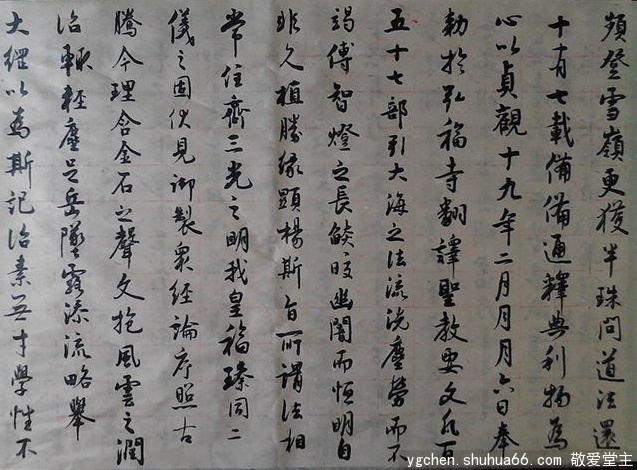 頻登雪嶺更獲半珠問道法還
十有七載備備通釋典利物為
心以貞觀十九年二月月月六日奉
勅於弘福寺翻譯聖教要文凡百
五十七部引大海之法流洗塵勞而不
竭傅智燈之長焰皎幽闇而恒明自
非久植勝緣顯楊斯旨所謂法相
常住齊三光之明我皇福臻同二
儀之固伏見御製衆經論序照古
騰今理含金石之聲文抱風雲之潤
治輒輕塵足岳墜露添流略舉
大綱以為斯記治素無才學性不
ygchen.shuhua66.com 敬爱堂主